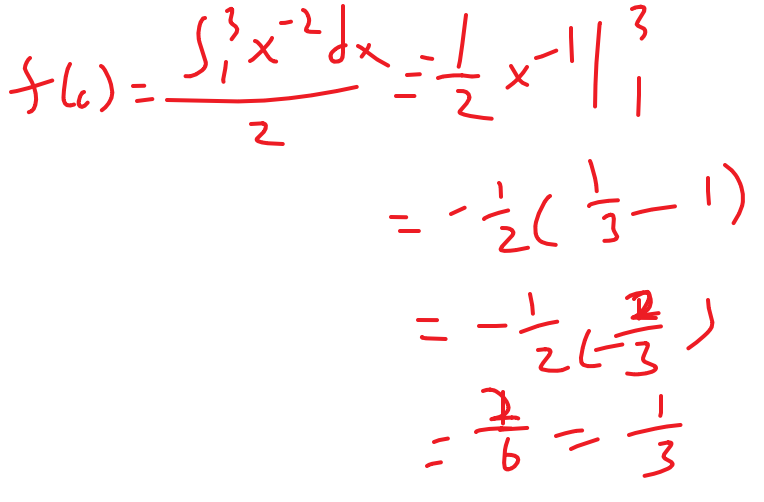 f(c) = \frac{\int_1^3 x^{-2} dx}{2} = -\frac{1}{2} x^{-1} \Big|_1^3
= -\frac{1}{2} \left( \frac{1}{3} - 1 \right)
= -\frac{1}{2} \left( -\frac{2}{3} \right)
= \frac{2}{6} = \frac{1}{3}